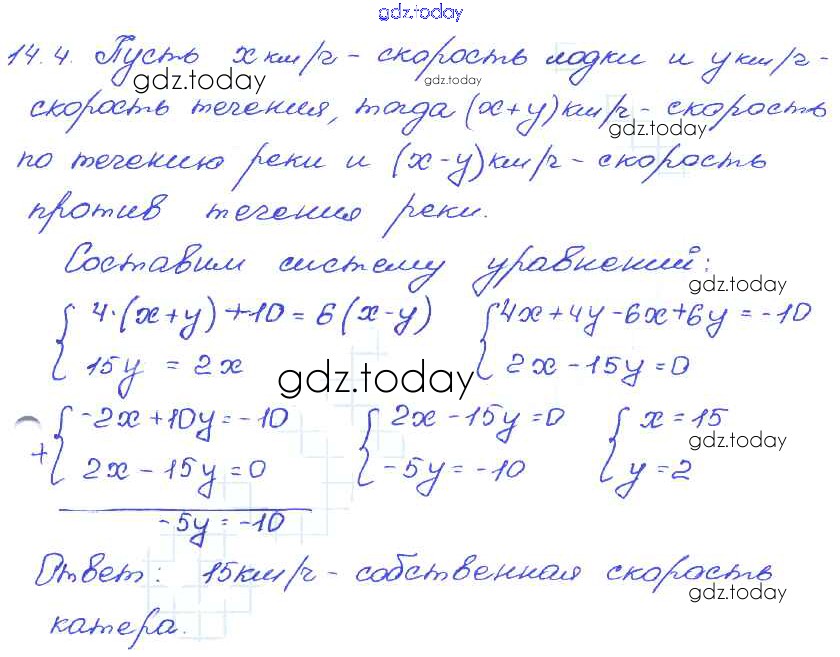 gdz.today
14.4. Пусть x км/ч - скорость лодки и y км/ч -
gdz.today gdz.today
скорость течения, тогда (x+y) км/ч - скорость
gdz.today
по течению реки и (x-y) км/ч - скорость
против течения реки.
Составим систему уравнений:
gdz.today
{ 4·(x+y)+10=6(x-y) { 4x+4y-6x+6y=-10
15y = 2x 2x-15y=0
gdz.today
+ { -2x+10y=-10 { 2x-15y=0 { x=15
gdz.today
2x-15y=0 -5y=-10 y=2
-5y=-10
Ответ: 15км/ч - собственная скорость
gdz.today gdz.today
катера.